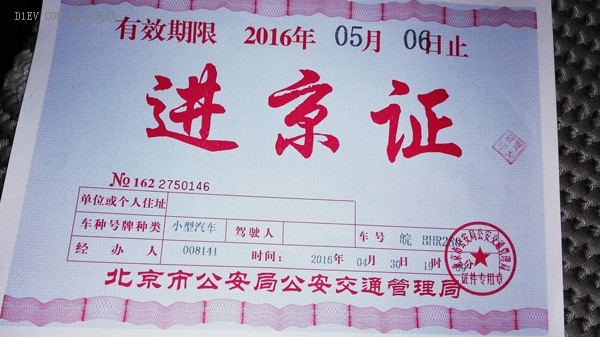 有效期限 2016年 05月 06日止
进京证
№ 162 2750146
单位或个人住址
车种号牌种类 小型汽车 驾驶人 车号 皖
经办人 008141 时间: 2016年 04月 30日
北京市公安局公安交通管理局
北京市公安局公安交通管理局
证件专用章